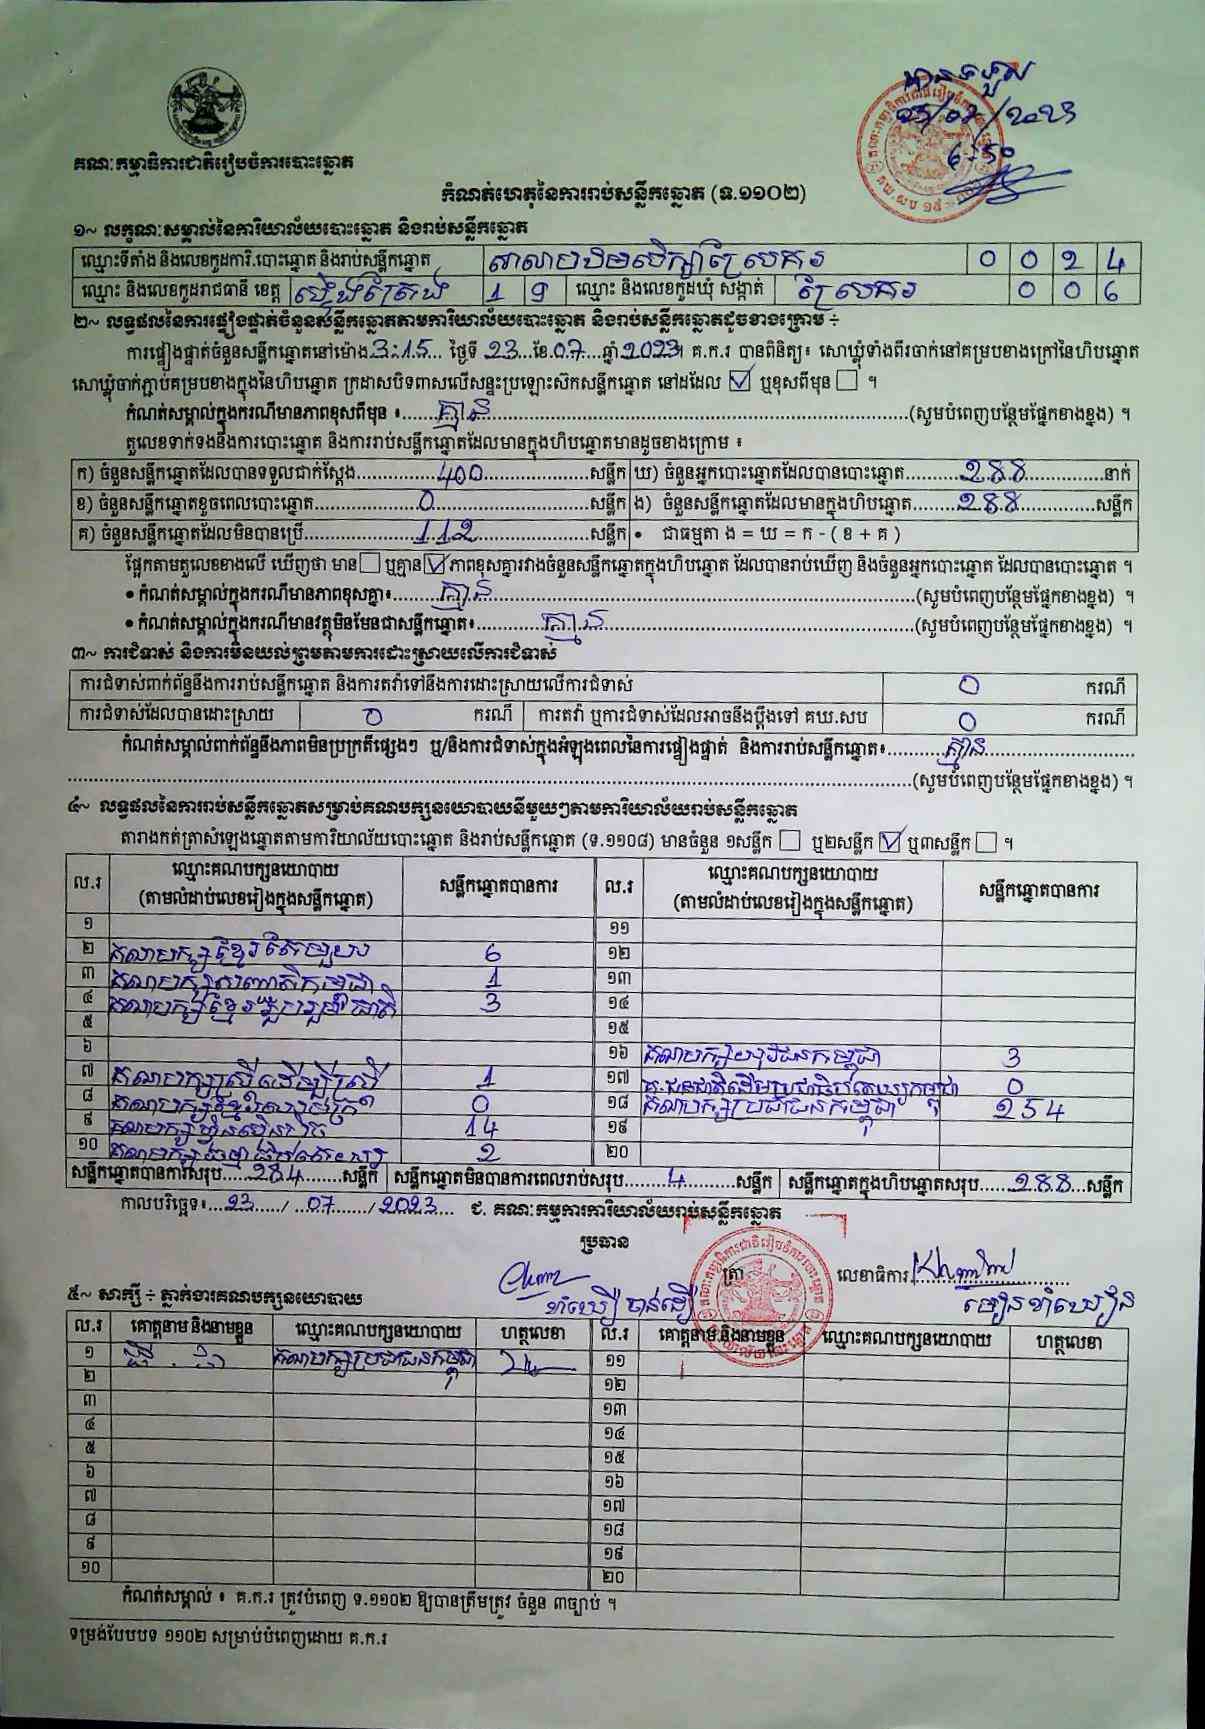 គណៈកម្មាធិការជាតិរៀបចំការបោះឆ្នោត
កំណត់ហេតុនៃការរាប់សន្លឹកឆ្នោត (ទ.១១០២)
១~ លក្ខណៈសម្គាល់នៃការិយាល័យបោះឆ្នោត និងរាប់សន្លឹកឆ្នោត
ឈ្មោះទីតាំង និងលេខកូដការិ.បោះឆ្នោត និងរាប់សន្លឹកឆ្នោត 0 0 2 4
ឈ្មោះ និងលេខកូដរាជធានី ខេត្ត ស្ទឹងត្រែង 1 9 ឈ្មោះ និងលេខកូដឃុំ សង្កាត់ 0 0 6
២~ លទ្ធផលនៃការផ្ទៀងផ្ទាត់ចំនួនសន្លឹកឆ្នោតតាមការិយាល័យបោះឆ្នោត និងរាប់សន្លឹកឆ្នោតដូចខាងក្រោម ÷
ការផ្ទៀងផ្ទាត់ចំនួនសន្លឹកឆ្នោតនៅម៉ោង 3:15 ថ្ងៃទី 23 ខែ 07 ឆ្នាំ 2023។ គ.ក.រ បានពិនិត្យ៖ សោឃ្លុំទាំងពីរចាក់នៅគម្របខាងក្រៅនៃហិបឆ្នោត
សោឃ្លុំចាក់ភ្ជាប់គម្របខាងក្នុងនៃហិបឆ្នោត ក្រដាសបិទពាសលើសន្ទះប្រឡោះស៊កសន្លឹកឆ្នោត នៅដដែល ☑ ឬខុសពីមុន ☐ ។
កំណត់សម្គាល់ក្នុងករណីមានភាពខុសពីមុន ៖ គ្មាន (សូមបំពេញបន្ថែមផ្នែកខាងខ្នង) ។
តួលេខទាក់ទងនឹងការបោះឆ្នោត និងការរាប់សន្លឹកឆ្នោតដែលមានក្នុងហិបឆ្នោតមានដូចខាងក្រោម ៖
ក) ចំនួនសន្លឹកឆ្នោតដែលបានទទួលជាក់ស្តែង 400 សន្លឹក ឃ) ចំនួនអ្នកបោះឆ្នោតដែលបានបោះឆ្នោត 288 នាក់
ខ) ចំនួនសន្លឹកឆ្នោតខូចពេលបោះឆ្នោត 0 សន្លឹក ង) ចំនួនសន្លឹកឆ្នោតដែលមានក្នុងហិបឆ្នោត 288 សន្លឹក
គ) ចំនួនសន្លឹកឆ្នោតដែលមិនបានប្រើ 112 សន្លឹក • ជាធម្មតា ង = ឃ = ក - ( ខ + គ )
ផ្អែកតាមតួលេខខាងលើ ឃើញថា មាន ☐ ឬគ្មាន ☑ ភាពខុសគ្នារវាងចំនួនសន្លឹកឆ្នោតក្នុងហិបឆ្នោត ដែលបានរាប់ឃើញ និងចំនួនអ្នកបោះឆ្នោត ដែលបានបោះឆ្នោត ។
• កំណត់សម្គាល់ក្នុងករណីមានភាពខុសគ្នា៖ គ្មាន (សូមបំពេញបន្ថែមផ្នែកខាងខ្នង) ។
• កំណត់សម្គាល់ក្នុងករណីមានវត្ថុមិនមែនជាសន្លឹកឆ្នោត៖ គ្មាន (សូមបំពេញបន្ថែមផ្នែកខាងខ្នង) ។
៣~ ការជំទាស់ និងការមិនយល់ព្រមតាមការដោះស្រាយលើការជំទាស់
ការជំទាស់ពាក់ព័ន្ធនឹងការរាប់សន្លឹកឆ្នោត និងការតវ៉ាទៅនឹងការដោះស្រាយលើការជំទាស់ 0 ករណី
ការជំទាស់ដែលបានដោះស្រាយ 0 ករណី ការតវ៉ា ឬការជំទាស់ដែលអាចនឹងប្តឹងទៅ គឃ.សប 0 ករណី
កំណត់សម្គាល់ពាក់ព័ន្ធនឹងភាពមិនប្រក្រតីផ្សេងៗ ឬ/និងការជំទាស់ក្នុងអំឡុងពេលនៃការផ្ទៀងផ្ទាត់ និងការរាប់សន្លឹកឆ្នោត៖ គ្មាន
(សូមបំពេញបន្ថែមផ្នែកខាងខ្នង) ។
៤~ លទ្ធផលនៃការរាប់សន្លឹកឆ្នោតសម្រាប់គណបក្សនយោបាយនីមួយៗតាមការិយាល័យរាប់សន្លឹកឆ្នោត
តារាងកត់ត្រាសំឡេងឆ្នោតតាមការិយាល័យបោះឆ្នោត និងរាប់សន្លឹកឆ្នោត (ទ.១១០៨) មានចំនួន ១សន្លឹក ☐ ឬ២សន្លឹក ☑ ឬ៣សន្លឹក ☐ ។
ល.រ ឈ្មោះគណបក្សនយោបាយ (តាមលំដាប់លេខរៀងក្នុងសន្លឹកឆ្នោត) សន្លឹកឆ្នោតបានការ ល.រ ឈ្មោះគណបក្សនយោបាយ (តាមលំដាប់លេខរៀងក្នុងសន្លឹកឆ្នោត) សន្លឹកឆ្នោតបានការ
១ ១១
២ គណបក្សខ្មែរតែមួយ 6 ១២
៣ 1 ១៣
៤ គណបក្សខ្មែររួបរួមជាតិ 3 ១៤
៥ ១៥
៦ ១៦ គណបក្សយុវជនកម្ពុជា 3
៧ គណបក្សស្រីដើម្បីស្រី 1 ១៧ គ.ជនជាតិដើមប្រជាធិបតេយ្យកម្ពុជា 0
៨ 0 ១៨ គណបក្សប្រជាជនកម្ពុជា 254
៩ គណបក្សហ៊្វុនស៊ិនប៉ិច 14 ១៩
១០ 2 ២០
សន្លឹកឆ្នោតបានការសរុប 284 សន្លឹក សន្លឹកឆ្នោតមិនបានការពេលរាប់សរុប 4 សន្លឹក សន្លឹកឆ្នោតក្នុងហិបឆ្នោតសរុប 288 សន្លឹក
កាលបរិច្ឆេទ៖ 23 / 07 / 2023 ជ. គណៈកម្មការការិយាល័យរាប់សន្លឹកឆ្នោត
ប្រធាន
ត្រា លេខាធិការ
៥~ សាក្សី ÷ ភ្នាក់ងារគណបក្សនយោបាយ
ល.រ គោត្តនាម និងនាមខ្លួន ឈ្មោះគណបក្សនយោបាយ ហត្ថលេខា ល.រ គោត្តនាម និងនាមខ្លួន ឈ្មោះគណបក្សនយោបាយ ហត្ថលេខា
១ គណបក្សប្រជាជនកម្ពុជា ១១
២ ១២
៣ ១៣
៤ ១៤
៥ ១៥
៦ ១៦
៧ ១៧
៨ ១៨
៩ ១៩
១០ ២០
កំណត់សម្គាល់ ៖ គ.ក.រ ត្រូវបំពេញ ទ.១១០២ ឱ្យបានត្រឹមត្រូវ ចំនួន ៣ច្បាប់ ។
ទម្រង់បែបបទ ១១០២ សម្រាប់បំពេញដោយ គ.ក.រ